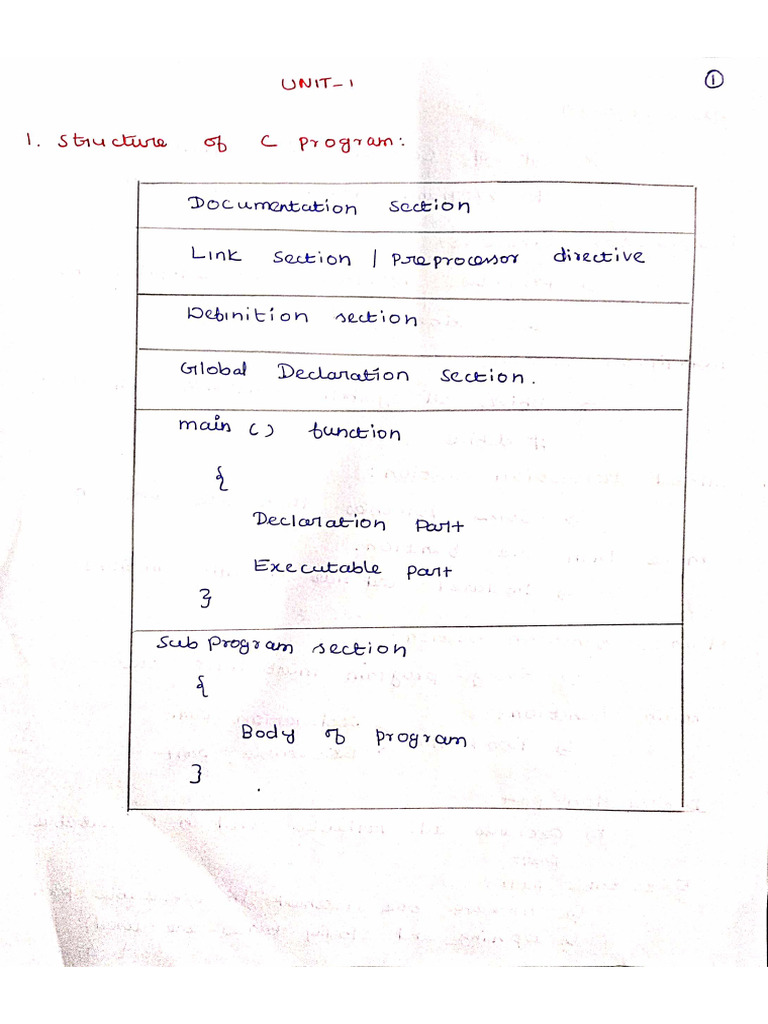 UNIT-1
1
1. Structure of C program:
Documentation section
Link section | preprocessor directive
Definition section
Global Declaration section.
main () function
{
Declaration part
Executable part
}
Sub program section
{
Body of program
}